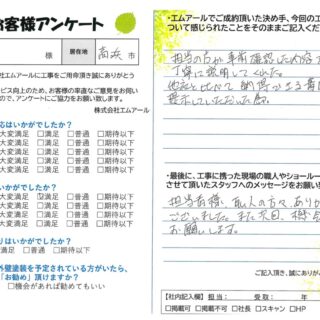 お客様アンケート
様 居在地 高浜 市
社エムアールに工事をご用命頂き誠にありがとう
ビス向上のため、お客様の率直なご意見をお伺い
ので、アンケートにご協力をお願い致します。
株式会社エムアール
応はいかがでしたか？
大変満足 □満足 □普通 □期待以下
大変満足 □満足 □普通 □期待以下
大変満足 □満足 □普通 □期待以下
いかがでしたか？
大変満足 ☑満足 □普通 □期待以下
大変満足 □満足 □普通 □期待以下
大変満足 □満足 □普通 □期待以下
りはいかがでしたか？
満足 □普通 □期待以下
外壁塗装を予定されている方がいたら、
「お勧め」頂けますか？
□機会があれば勧めてもいい
・エムアールでご成約頂いた決め手、今回の工
ついて感じられたことをそのままご記入くだ
担当の方が事前確認した内容を
丁寧に説明してくれた。
他社と比べて納得が出来る費用
提示していただいた為。
・最後に、工事に携った現場の職人やショールー
させて頂いたスタッフへのメッセージをお願い
担当者様、職人の方々、ありが
ございました。また次回、機会
お願いします。
ご記入頂き、誠にありが
【社内記入欄】担当： 受取： /
□掲載可 □掲載不可 □社長 □スキャン □HP